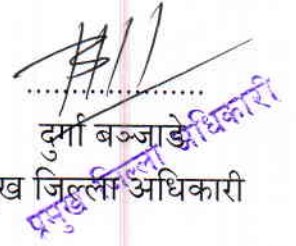 ....................
दुर्गा बञ्जाडे
ख जिल्ला अधिकारी
प्रमुख जिल्ला अधिकारी